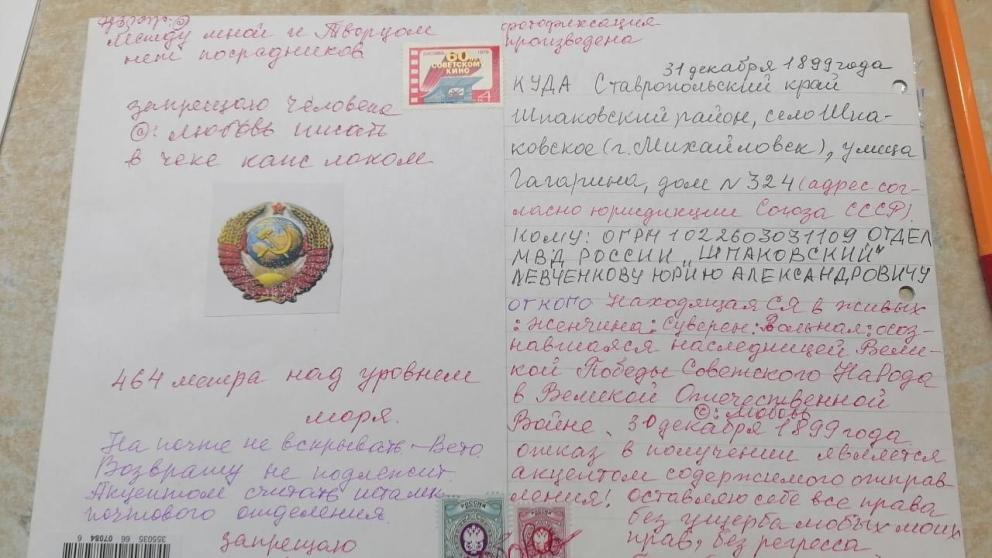 Между мной и Творцом
нет посредников
запрещаю человека
©: любовь писать
в чеке капс локом
464 метра над уровнем
моря.
На почте не вскрывать – Вето.
Возврату не подлежит.
Акцептом считать штамп
почтового отделения.
запрещаю
355035 66 07084 6
60 лет
СОВЕТСКОМ
КИНО
4
фотофиксация
произведена
31 декабря 1899 года
КУДА Ставропольский край
Шпаковский район, село Шпа-
ковское (г. Михайловск), улица
Гагарина, дом N 324 (адрес сог-
ласно юрисдикции Союза СССР).
КОМУ: ОГРН 1022603031109 ОТДЕЛ
МВД РОССИИ „ШПАКОВСКИЙ"
ЛЕВЧЕНКОВУ ЮРИЮ АЛЕКСАНДРОВИЧУ
ОТ КОГО Находящая СЯ в живых
: женчина: Суверен: Вольная: осоз-
навшаяся наследницей Вели-
кой Победы Советского НаРода
в Великой Отечественной
©: любовь
Войне. 30 декабря 1899 года
отказ в получении является
акцептом содержимого отправ-
ления! оставляю себе все права
без ущерба любых моих
прав, без регресса
РОССИЯ
РОССИЯ